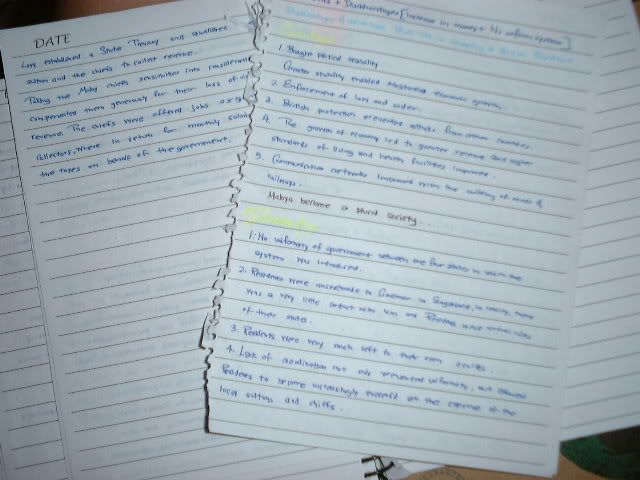 DATE
Low established a State Treasury and
sultan and the chiefs to collect revenue.
Taking the Malay chiefs sensitivities into
compensated them generously for their loss of
revenue. The chiefs were offered jobs as
collectors, where in return for monthly
the taxes on behalf of the government.
Disadvantages [increase in money + No uniform system]
1. Brought political stability
Greater stability enabled economic growth.
2. Enforcement of law and order.
3. British protection prevented attacks from other countries.
4. The growth of economy led to greater revenue and higher
standards of living and health facilities improved.
5. Communication networks improved upon the building of roads &
railways.
Malaya became a plural society.
1. No uniformity of government between the four states in which the
system was introduced.
2. Residents were answerable to Governor in Singapore, in reality, there
was a very little contact with him and Residents were virtual rulers
of their states.
3. Residents were very much left to their own devices.
4. Lack of coordination not only prevented uniformity, but allowed
Residents to become increasingly powerful at the expense of the
local sultans and chiefs.